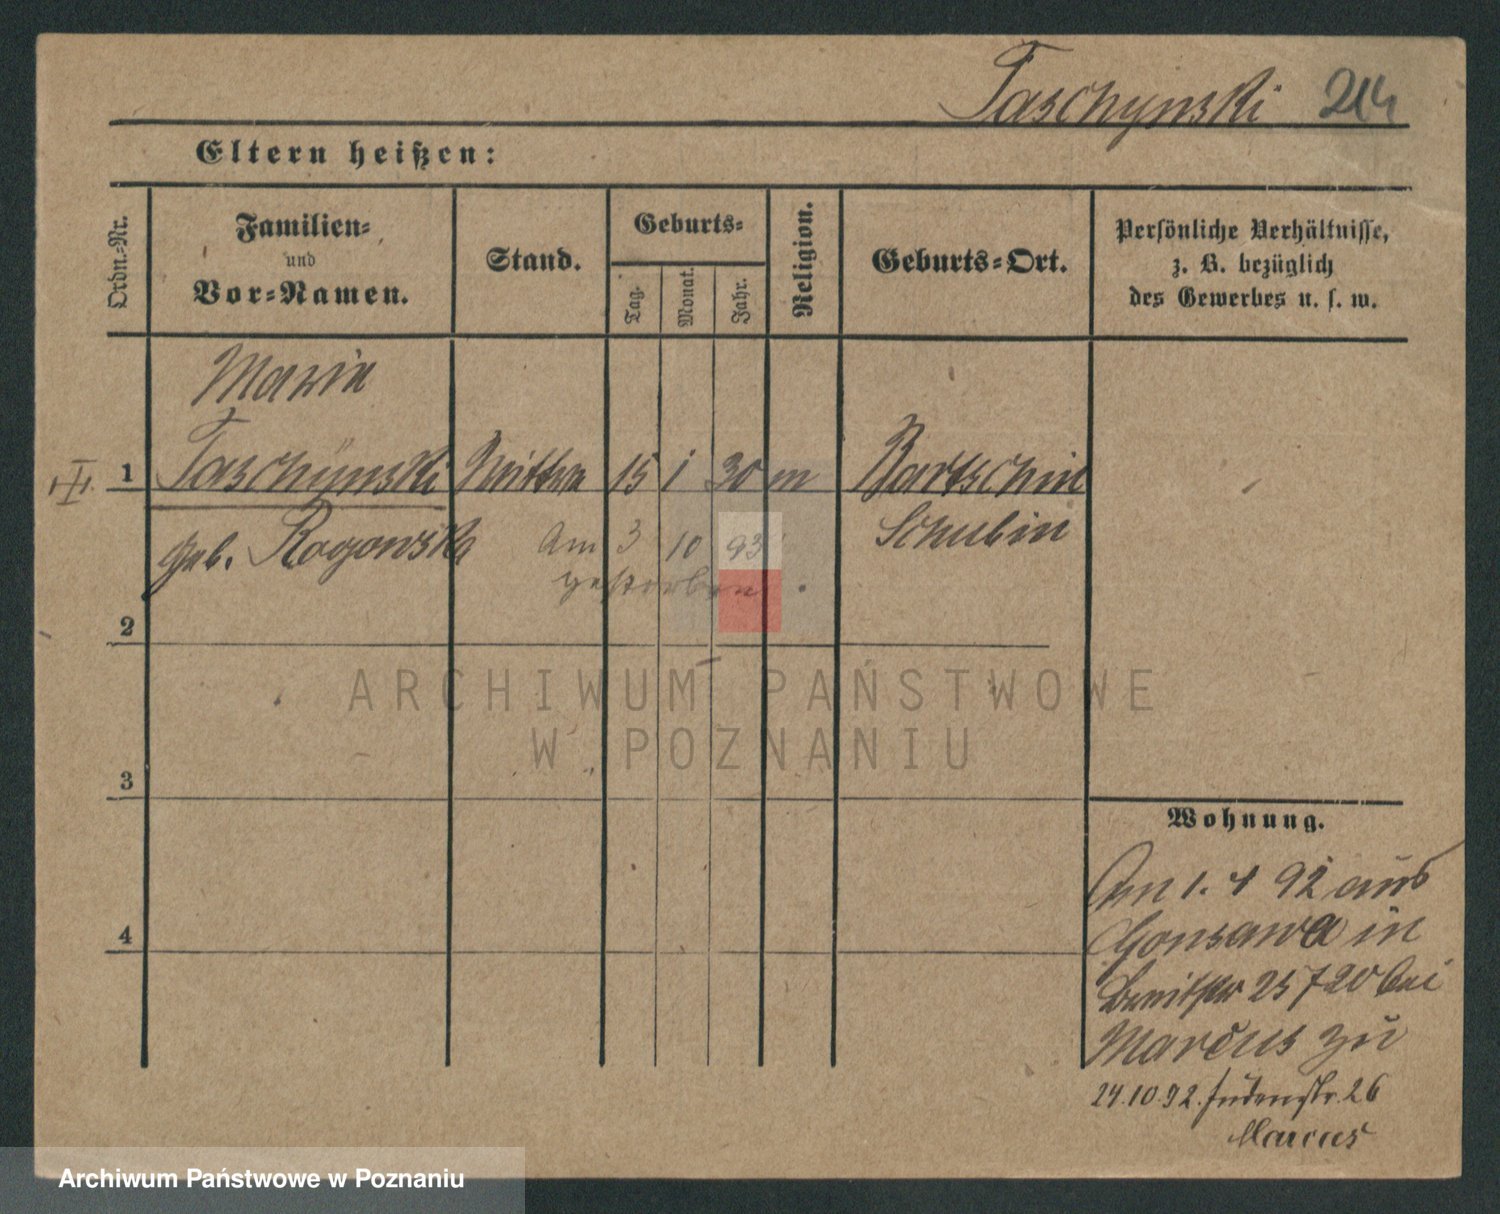 Taschynski 214
Eltern heißen:
Ordn.-Nr.
Familien-
und
Vor-Namen.
Stand.
Geburts-
Tag.
Monat.
Jahr.
Religion.
Geburts-Ort.
Persönliche Verhältnisse,
z. B. bezüglich
des Gewerbes u. s. w.
Marie
1 Taschÿnski Wittwe 15 1 30 m Bartschin
geb. Rogowska Schubin
Am 3 10 93
gestorben.
2
ARCHIWUM PAŃSTWOWE
W POZNANIU
3
Wohnung.
Am 1. 4 92 aus
Gonsawa in
Breitstr 25 720 bei
Marcus zu
24.10.92. Judenstr. 26
Marcus
4
Archiwum Państwowe w Poznaniu